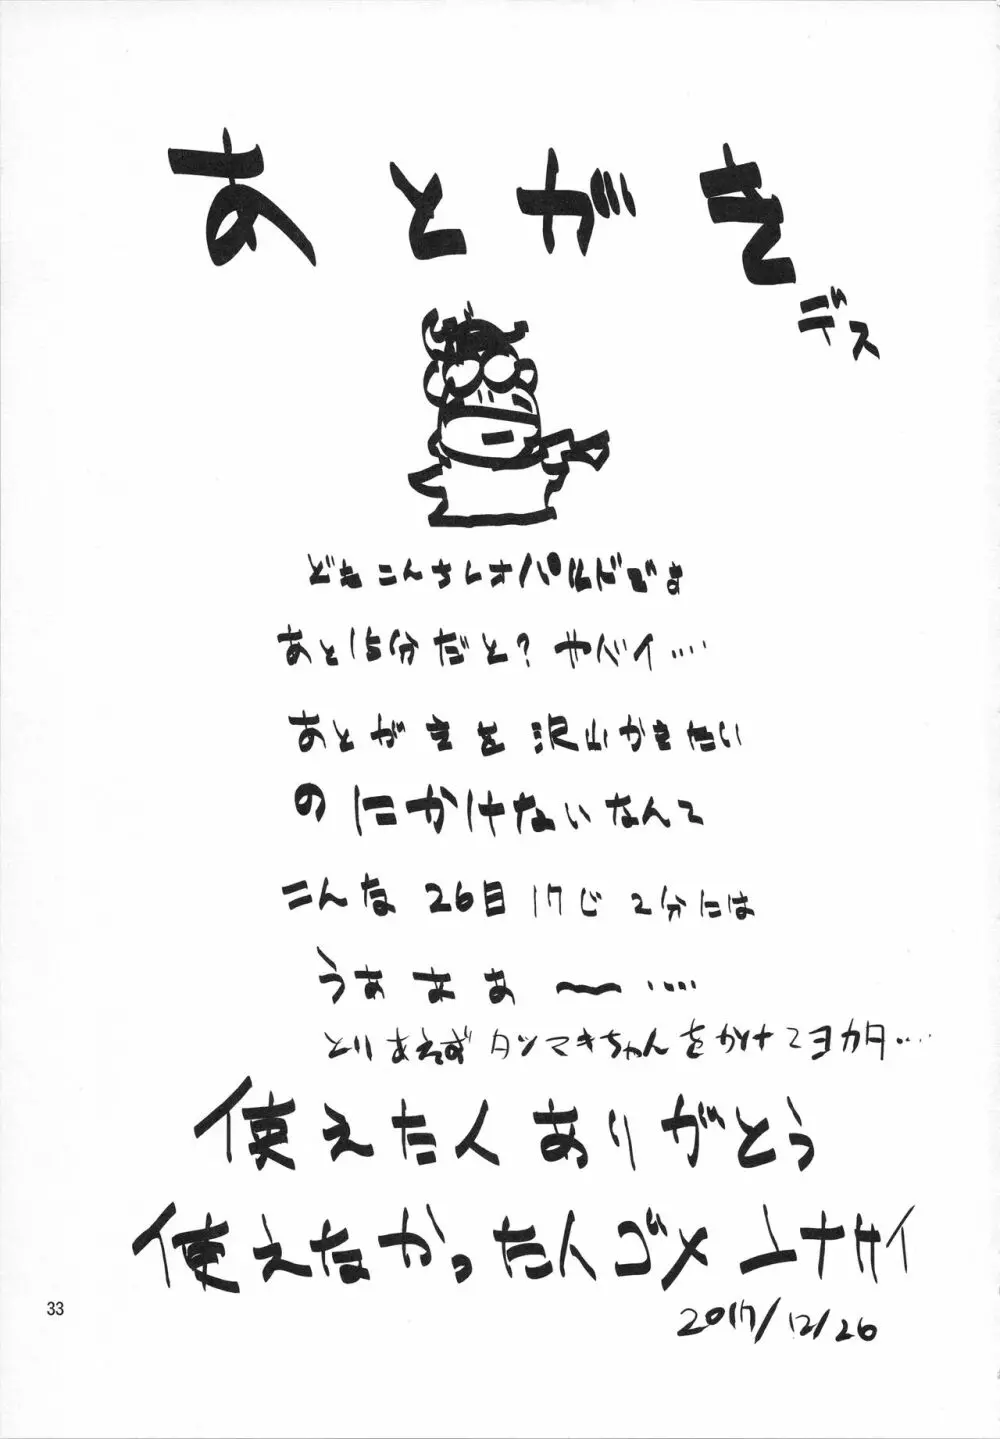 あとがき
デス
どもこんちレオパルドです
あと15分だと?ヤバイ‥‥
あとがきを沢山かきたい
のにかけないなんて
こんな26日17じ2分には
うああぁ〜‥‥
とりあえずタツマキちゃんをかけてヨカタ‥‥
使えた人ありがとう
使えなかった人ゴメンナサイ
2017/12/26
33